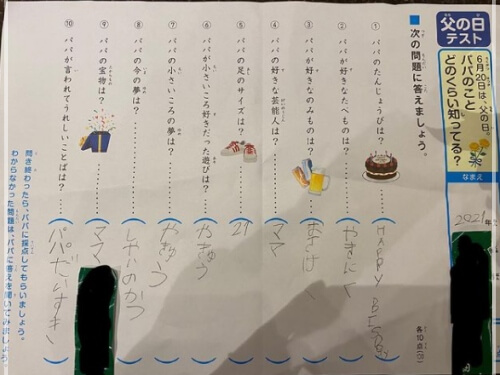 父の日
テスト
6月20日は、父の日。
パパのこと
どのくらい知ってる?
なまえ
2021年
■次の問題に答えましょう。
各10点
① パパのたんじょうびは?……( HAPPY )
② パパが好きなたべものは?……( やきにく )
③ パパが好きなのみものは?……( おさけ )
④ パパの好きな芸能人は?……( ママ )
⑤ パパの足のサイズは?……( )
⑥ パパが小さいころ好きだった遊びは?……( やきゅう )
⑦ パパの小さいころの夢は?……( やきゅう )
⑧ パパの今の夢は?……( )
⑨ パパの宝物は?……( ママ
⑩ パパが言われてうれしいことばは?……( パパだいすき )
聞き終わったら、パパに採点してもらいましょう。
わからなかった問題は、パパに答えを聞いてみましょう